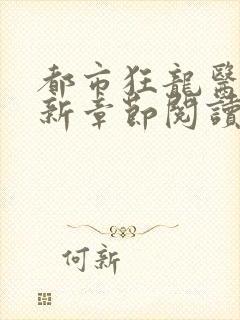 都市狂龍醫
新章節閱讀
何新